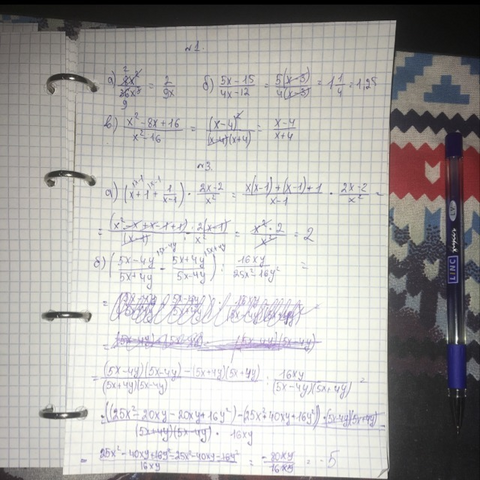 №1.
а) 8x²/36x³ = 2/9x б) (5x-15)/(4x-12) = 5(x-3)/4(x-3) = 1 1/4 = 1,25
в) (x²-8x+16)/(x²-16) = (x-4)²/(x-4)(x+4) = (x-4)/(x+4)
№3.
а) (x+1+1/(x-1)) · (2x-2)/x² = (x(x-1)+(x-1)+1)/(x-1) · (2x-2)/x² =
= (x²-x+x-1+1)·2(x-1)/(x-1)·x² = x²·2/x² = 2
б) ((5x-4y)/(5x+4y) - (5x+4y)/(5x-4y)) : 16xy/(25x²-16y²) =
= ((5x-4y)(5x-4y)-(5x+4y)(5x+4y))/(5x+4y)(5x-4y) : 16xy/(5x-4y)(5x+4y) =
= ((25x²-20xy-20xy+16y²)-(25x²+40xy+16y²))·(5x-4y)(5x+4y)/(5x+4y)(5x-4y)·16xy
= (25x²-40xy+16y²-25x²-40xy-16y²)/16xy = -80xy/16xy = -5
LINC